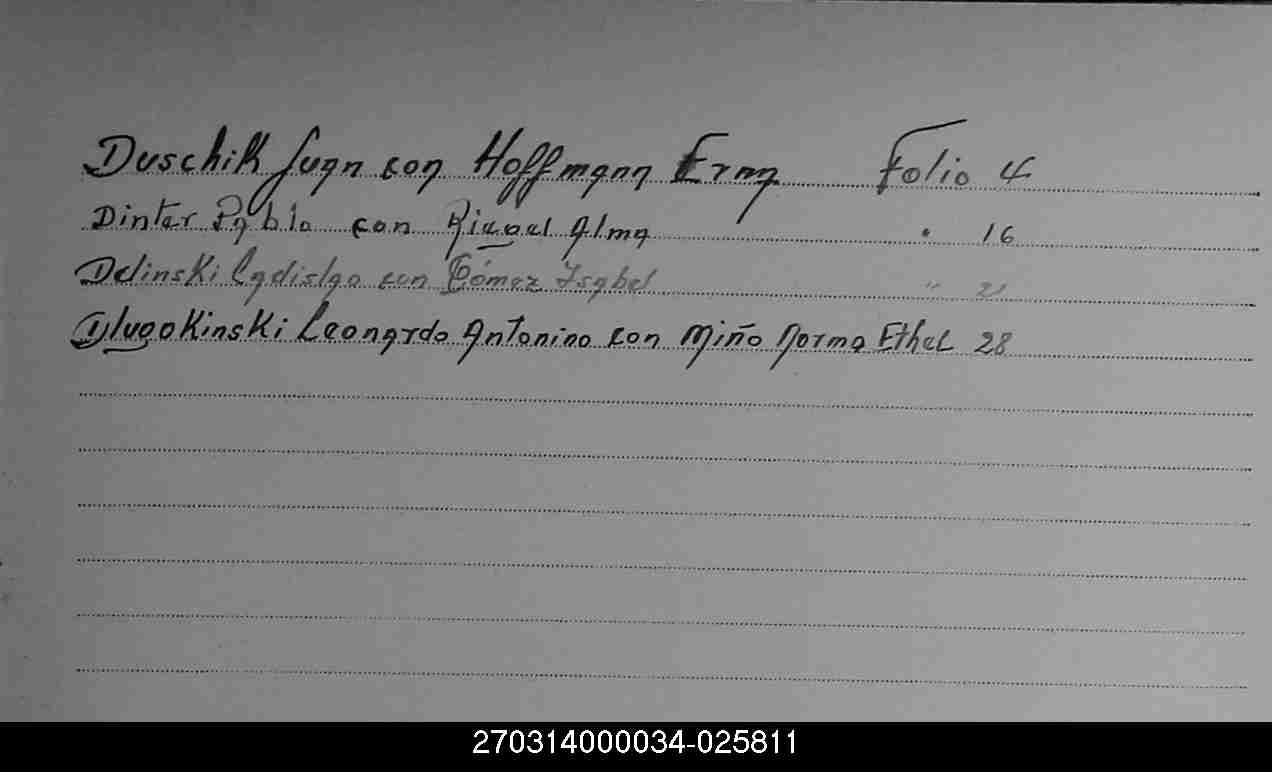 Duschik Juan con Hoffmann Erna Folio 4
Dinter Pablo con Riegel Alma " 16
Delinski Ladislao con Gómez Isabel " 21
Dlugokinski Leonardo Antonino con Miño Norma Ethel 28
270314000034-025811